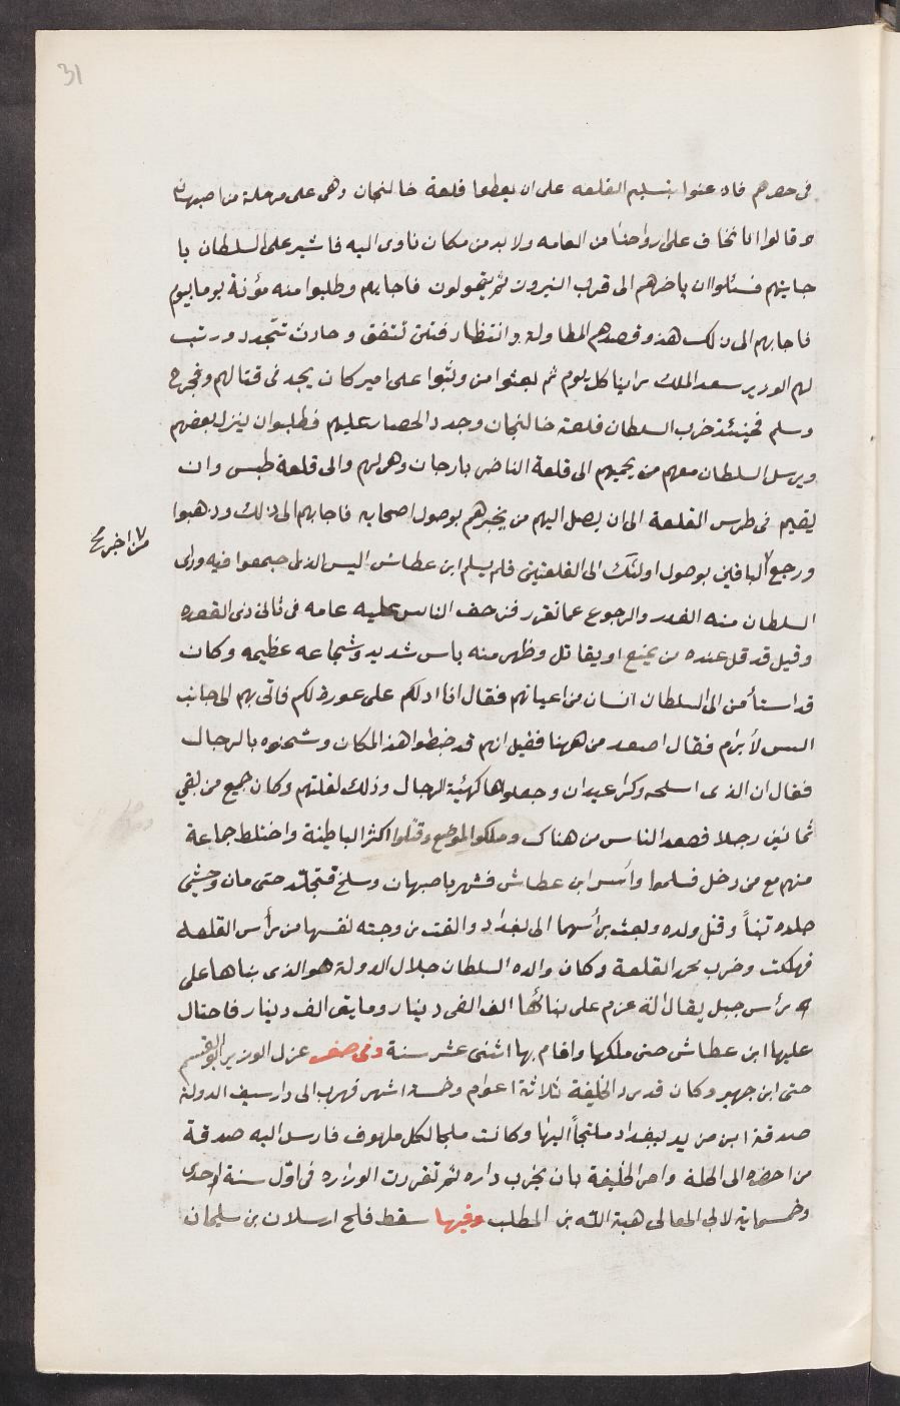 31
فى حصرهم فاذعنوا بتسليم القلعه على ان يعطوا قلعة خالنجان وهى على مرحلة من اصبهان
وقالوا انا نخاف على ارواحنا من العامه ولا بد من مكان ناوى اليه فاشير على السلطان با
جابتهم فسئلوا ان ياخرهم الى قرب النيروز ثم يتحولون فاجابهم وطلبوا منه مؤنة يوما بيوم
فاجابهم الى ذلك هذا وقصدهم المطاولة وانتظار فتق ئتفق وحادث تتجدد ورتب
لهم الوزير سعد الملك راتبا كل يوم ثم بعثوا من وثبوا على امير كان يجد فى قتالهم فجرح
وسلم فحينئذ خرب السلطان قلعة خالنجان وجدد الحصار عليهم فطلبوا ان ينزل بعضهم
ويرسل السلطان معهم من يحميهم الى قلعة الناضر بارجان وهى لهم والى قلعة طبس وان
يقيم فى طرس القلعة الى ان يصل اليهم من يخبرهم بوصول اصحابه فاجابهم الى ذلك وذهبوا
ورجع الباقين بوصول اولئك الى القلعتين فلم يسلم ابن عطاش اليس الذى اجمعوا فيه وراى
السلطان منه الغدر والرجوع عما تقرر فزحف الناس عليه عامه فى ثانى ذى القعده
وقيل قد قل عنده من يمنع او يقاتل وظهر منه باس شديد وشجاعه عظيمه وكان
قد استأمن الى السلطان انسان من اعيانهم فقال انا ادلكم على عورة لكم فاتى بهم الى جانب
السس لأ يرام فقال اصعد من ههنا فقيل انهم قد ضبطوا هذا المكان وشحنوه بالرجال
فقال ان الذى اسلحه وكزاعيدان وجعلوها كهيئة الرجال وذلك لقلتهم وكان جميع من بقي
ثمانين رجلا فصعد الناس من هناك وملكوا الموضع وقتلوا اكثر الباطنية واختلط جماعة
منهم مع من دخل فسلموا واسر ابن عطاش فشهر باصبهان وسلخ فتجلد حتى مات وحشى
جلده تبناً وقتل ولده وبعث برأسهما الى بغداد والقت زوجته نفسها من رأس القلعه
فهلكت وخرب محمد القلعة وكان والده السلطان جلال الدولة هو الذى بناها على
رأس جبل يقال انه غرم على بنائها الف الفى دينار ومايتى الف دينار فاحتال
عليها ابن عطاش حتى ملكها واقام بها اثنى عشر سنة وفى صفر عزل الوزير ابو القسم
حتى ابن جهير وكان قد وزر الخليفة ثلاثة اعوام وخمسة اشهر فهرب الى دار سيف الدولة
صدقة ابن مزيد ببغداد ملتجأ اليها وكانت ملجا لكل ملهوف فارسل اليه صدقة
من احضره الى الحلة وامر الخليفة بان يخرب داره ثم تقررت الوزاره فى اول سنة احدى
وخمسماية لابى المعالى هبة الله بن المطلب وفيها سقط قلج ارسلان بن سليمان